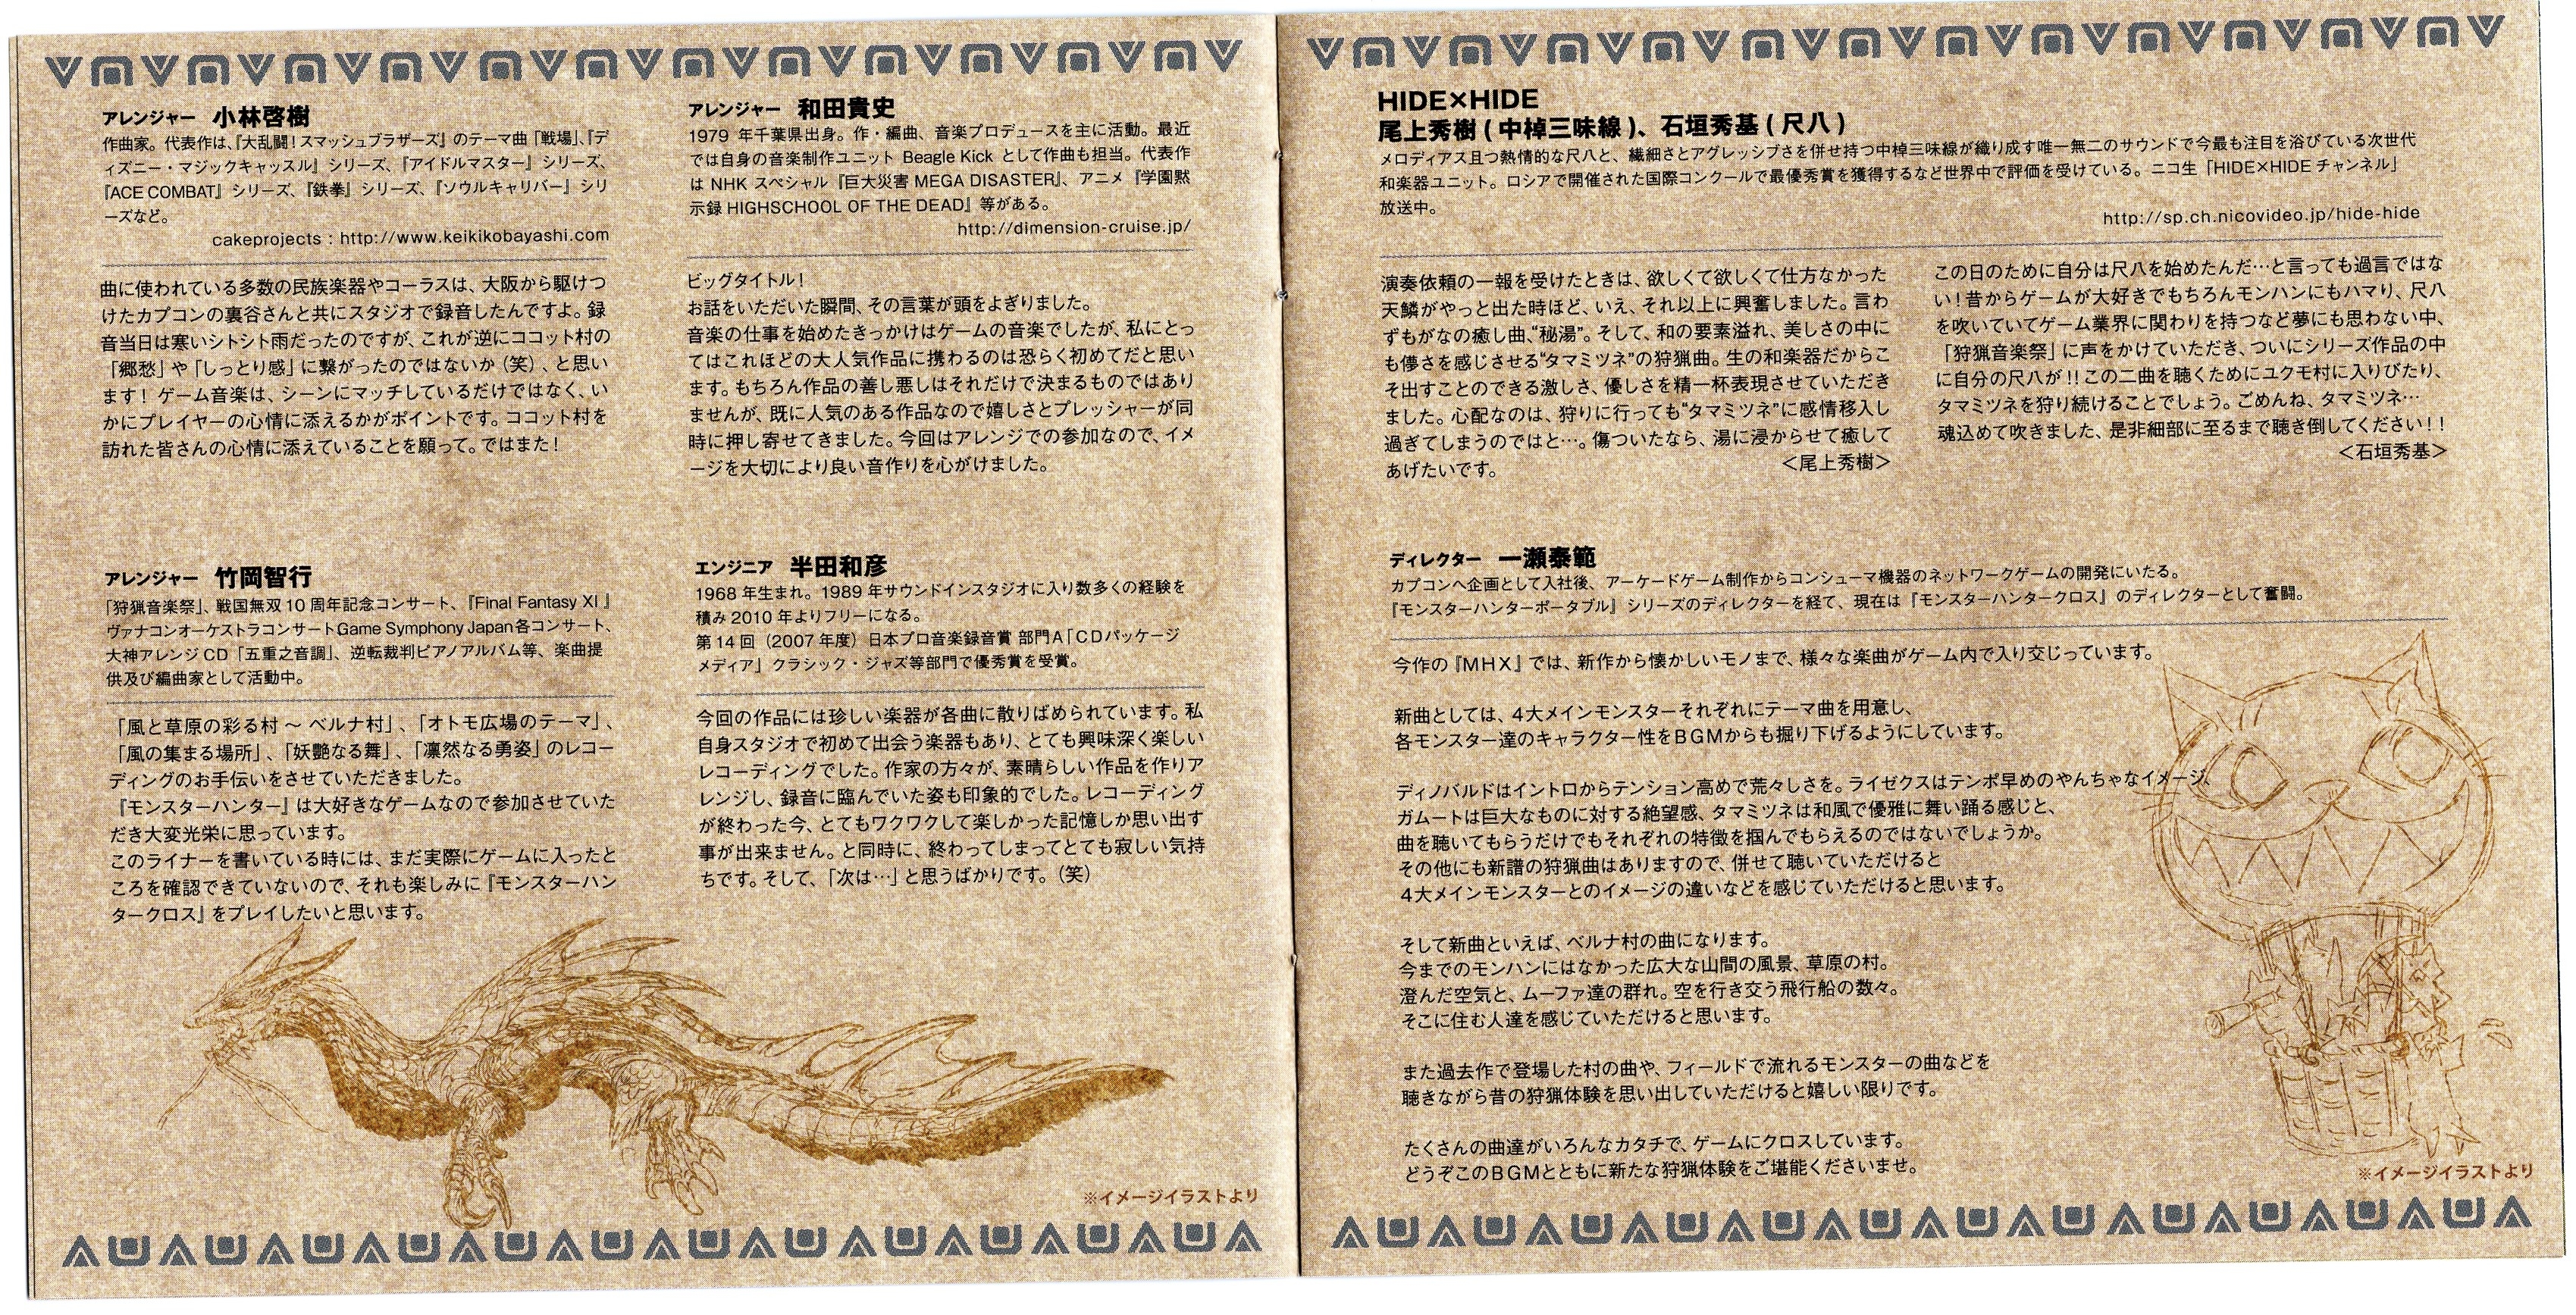 アレンジャー 小林啓樹
作曲家。代表作は、『大乱闘！スマッシュブラザーズ』のテーマ曲「戦場」、『デ
ィズニー・マジックキャッスル』シリーズ、『アイドルマスター』シリーズ、
『ACE COMBAT』シリーズ、『鉄拳』シリーズ、『ソウルキャリバー』シリ
ーズなど。
cakeprojects : http://www.keikikobayashi.com
曲に使われている多数の民族楽器やコーラスは、大阪から駆けつ
けたカプコンの裏谷さんと共にスタジオで録音したんですよ。録
音当日は寒いシトシト雨だったのですが、これが逆にココット村の
「郷愁」や「しっとり感」に繋がったのではないか（笑）、と思い
ます！ ゲーム音楽は、シーンにマッチしているだけではなく、い
かにプレイヤーの心情に添えるかがポイントです。ココット村を
訪れた皆さんの心情に添えていることを願って。ではまた！
アレンジャー 和田貴史
1979 年千葉県出身。作・編曲、音楽プロデュースを主に活動。最近
では自身の音楽制作ユニット Beagle Kick として作曲も担当。代表作
は NHK スペシャル『巨大災害 MEGA DISASTER』、アニメ『学園黙
示録 HIGHSCHOOL OF THE DEAD』等がある。
http://dimension-cruise.jp/
ビッグタイトル！
お話をいただいた瞬間、その言葉が頭をよぎりました。
音楽の仕事を始めたきっかけはゲームの音楽でしたが、私にとっ
てはこれほどの大人気作品に携わるのは恐らく初めてだと思い
ます。もちろん作品の善し悪しはそれだけで決まるものではあり
ませんが、既に人気のある作品なので嬉しさとプレッシャーが同
時に押し寄せてきました。今回はアレンジでの参加なので、イメ
ージを大切により良い音作りを心がけました。
アレンジャー 竹岡智行
「狩猟音楽祭」、戦国無双 10 周年記念コンサート、『Final Fantasy XI 』
ヴァナコンオーケストラコンサート、Game Symphony Japan各コンサート、
大神アレンジ CD「五重之音調」、逆転裁判ピアノアルバム等、楽曲提
供及び編曲家として活動中。
「風と草原の彩る村 ～ ベルナ村」、「オトモ広場のテーマ」、
「風の集まる場所」、「妖艶なる舞」、「凛然なる勇姿」のレコー
ディングのお手伝いをさせていただきました。
『モンスターハンター』は大好きなゲームなので参加させていた
だき大変光栄に思っています。
このライナーを書いている時には、まだ実際にゲームに入ったと
ころを確認できていないので、それも楽しみに『モンスターハン
タークロス』をプレイしたいと思います。
エンジニア 半田和彦
1968 年生まれ。1989 年サウンドインスタジオに入り数多くの経験を
積み 2010 年よりフリーになる。
第 14 回（2007 年度）日本プロ音楽録音賞 部門A「CDパッケージ
メディア」クラシック・ジャズ等部門で優秀賞を受賞。
今回の作品には珍しい楽器が各曲に散りばめられています。私
自身スタジオで初めて出会う楽器もあり、とても興味深く楽しい
レコーディングでした。作家の方々が、素晴らしい作品を作りア
レンジし、録音に臨んでいた姿も印象的でした。レコーディング
が終わった今、とてもワクワクして楽しかった記憶しか思い出す
事が出来ません。と同時に、終わってしまってとても寂しい気持
ちです。そして、「次は…」と思うばかりです。（笑）
※イメージイラストより
HIDE×HIDE
尾上秀樹 ( 中棹三味線 )、石垣秀基 ( 尺八 )
メロディアス且つ熱情的な尺八と、繊細さとアグレッシブさを併せ持つ中棹三味線が織り成す唯一無二のサウンドで今最も注目を浴びている次世代
和楽器ユニット。ロシアで開催された国際コンクールで最優秀賞を獲得するなど世界中で評価を受けている。ニコ生「HIDE×HIDE チャンネル」
放送中。
http://sp.ch.nicovideo.jp/hide-hide
演奏依頼の一報を受けたときは、欲しくて欲しくて仕方なかった
天鱗がやっと出た時ほど、いえ、それ以上に興奮しました。言わ
ずもがなの癒し曲、“秘湯”。そして、和の要素溢れ、美しさの中に
も儚さを感じさせる“タマミツネ”の狩猟曲。生の和楽器だからこ
そ出すことのできる激しさ、優しさを精一杯表現させていただき
ました。心配なのは、狩りに行っても“タマミツネ”に感情移入し
過ぎてしまうのではと…。傷ついたなら、湯に浸からせて癒して
あげたいです。
＜尾上秀樹＞
この日のために自分は尺八を始めたんだ…と言っても過言ではな
い！昔からゲームが大好きでもちろんモンハンにもハマり、尺八
を吹いていてゲーム業界に関わりを持つなど夢にも思わない中、
「狩猟音楽祭」に声をかけていただき、ついにシリーズ作品の中
に自分の尺八が！！この二曲を聴くためにユクモ村に入りびたり、
タマミツネを狩り続けることでしょう。ごめんね、タマミツネ…
魂込めて吹きました、是非細部に至るまで聴き倒してください！！
＜石垣秀基＞
ディレクター 一瀬泰範
カプコンへ企画として入社後、アーケードゲーム制作からコンシューマ機器のネットワークゲームの開発にいたる。
『モンスターハンターポータブル』シリーズのディレクターを経て、現在は『モンスターハンタークロス』のディレクターとして奮闘。
今作の『MHX』では、新作から懐かしいモノまで、様々な楽曲がゲーム内で入り交じっています。
新曲としては、4大メインモンスターそれぞれにテーマ曲を用意し、
各モンスター達のキャラクター性をBGMからも掘り下げるようにしています。
ディノバルドはイントロからテンション高めで荒々しさを。ライゼクスはテンポ早めのやんちゃなイメージ、
ガムートは巨大なものに対する絶望感、タマミツネは和風で優雅に舞い踊る感じと、
曲を聴いてもらうだけでもそれぞれの特徴を掴んでもらえるのではないでしょうか。
その他にも新譜の狩猟曲はありますので、併せて聴いていただけると
4大メインモンスターとのイメージの違いなどを感じていただけると思います。
そして新曲といえば、ベルナ村の曲になります。
今までのモンハンにはなかった広大な山間の風景、草原の村。
澄んだ空気と、ムーファ達の群れ。空を行き交う飛行船の数々。
そこに住む人達を感じていただけると思います。
また過去作で登場した村の曲や、フィールドで流れるモンスターの曲などを
聴きながら昔の狩猟体験を思い出していただけると嬉しい限りです。
たくさんの曲達がいろんなカタチで、ゲームにクロスしています。
どうぞこのBGMとともに新たな狩猟体験をご堪能くださいませ。
※イメージイラストより